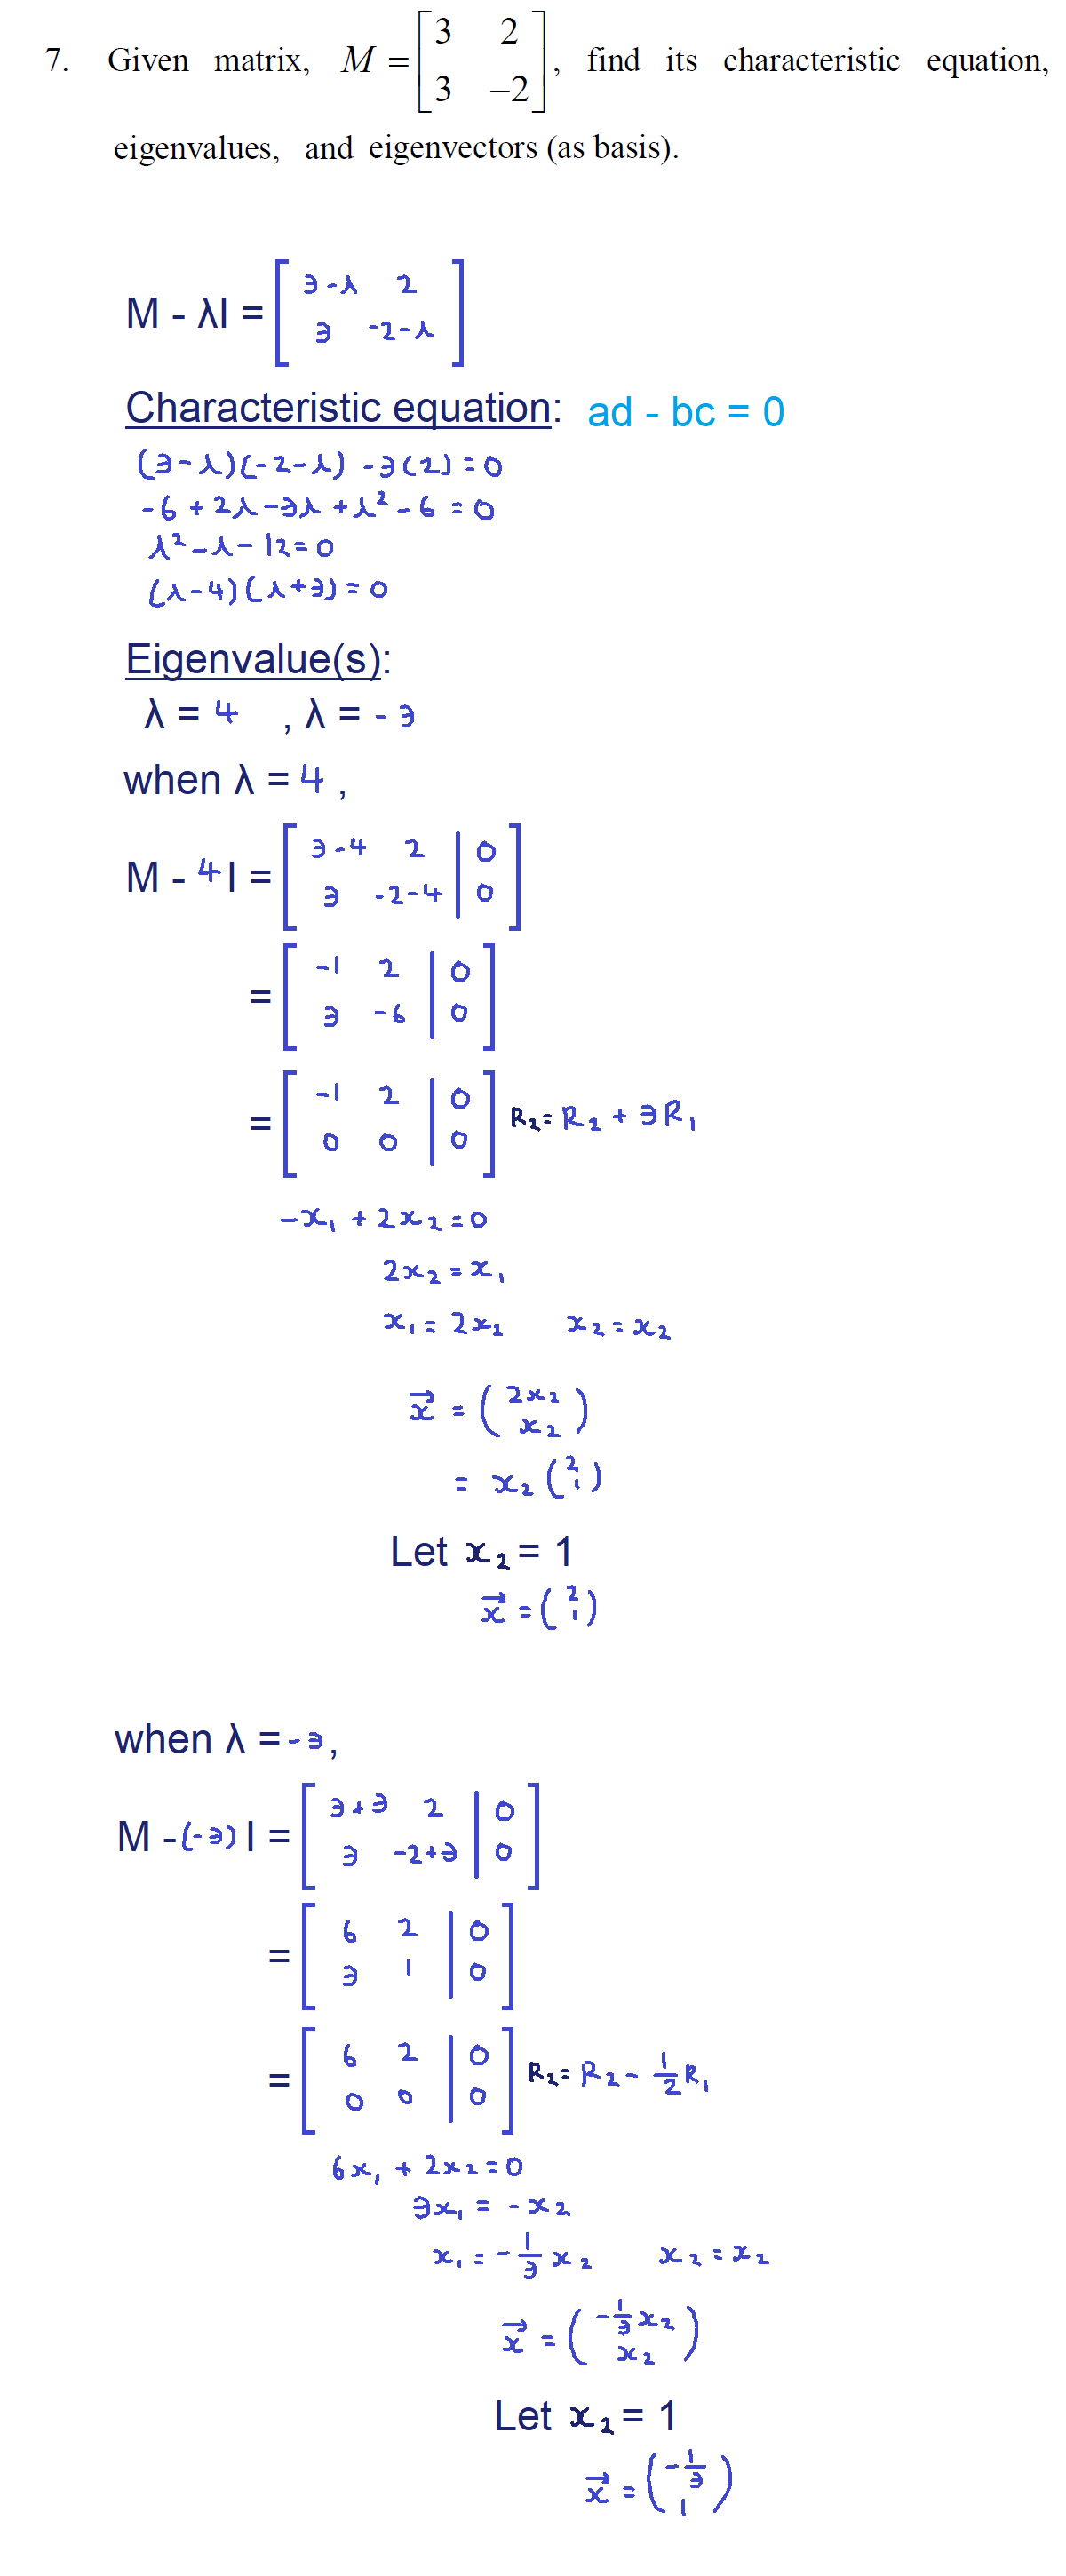 7. Given matrix, M = [3 2; 3 −2], find its characteristic equation,
eigenvalues, and eigenvectors (as basis).
M - λI = [3-λ 2; 3 -2-λ]
Characteristic equation: ad - bc = 0
(3-λ)(-2-λ) -3(2) = 0
-6 + 2λ -3λ + λ² - 6 = 0
λ² - λ - 12 = 0
(λ-4)(λ+3) = 0
Eigenvalue(s):
λ = 4 , λ = -3
when λ = 4 ,
M - 4I = [3-4 2 | 0; 3 -2-4 | 0]
= [-1 2 | 0; 3 -6 | 0]
= [-1 2 | 0; 0 0 | 0] R₂= R₂ + 3R₁
-x₁ + 2x₂ = 0
2x₂ = x₁
x₁ = 2x₂ x₂ = x₂
x⃗ = (2x₂; x₂)
= x₂ (2; 1)
Let x₂ = 1
x⃗ = (2; 1)
when λ = -3,
M -(-3) I = [3+3 2 | 0; 3 -2+3 | 0]
= [6 2 | 0; 3 1 | 0]
= [6 2 | 0; 0 0 | 0] R₂= R₂ - 1/2 R₁
6x₁ + 2x₂ = 0
3x₁ = -x₂
x₁ = -1/3 x₂ x₂ = x₂
x⃗ = (-1/3 x₂; x₂)
Let x₂ = 1
x⃗ = (-1/3; 1)